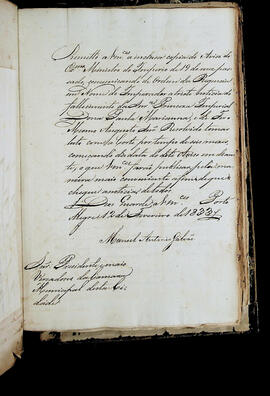 Remetto a Vm.ces a inclusa copia do Aviso do
Ministro do Imperio de 19 de
communicando de Ordem da Regencia
em Nome do Imperador a triste noticia do
fallecimento da Princeza Imperial
Dona Paula Marianna, e de
Mesmo Augusto Resolvido tomar
luto com a Corte por tempo de seis mezes,
começando da data do dito Officio em dian
te; o que Vm.ces farão publicar, pela ma
neira mais conveniente afim de que
chegue a noticia de todos
Deos Guarde a Vm.ces Porto
Alegre 12 de Fevereiro de 1833
Manoel Antonio Galvão
Snr. Presidente, e mais
Vereadores da Camara
Municipal desta Ci
dade